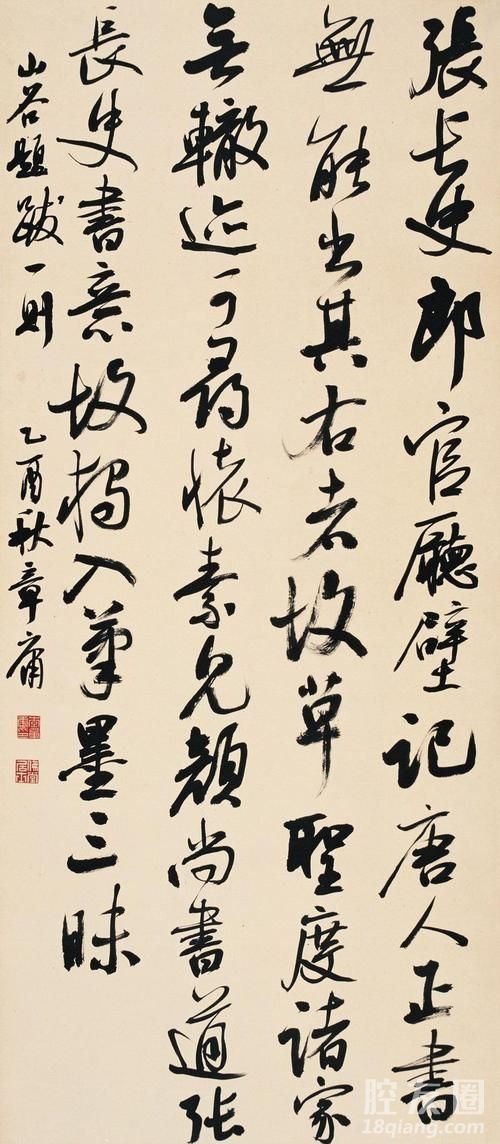 張長史郎官廳壁記唐人正書
無能出其右者故草聖度諸家
無轍迹可尋懷素見顏尚書道張
長史書意故獨入筆墨三昧
山谷題跋一則 乙酉秋章
腔友圈
18qiang.com